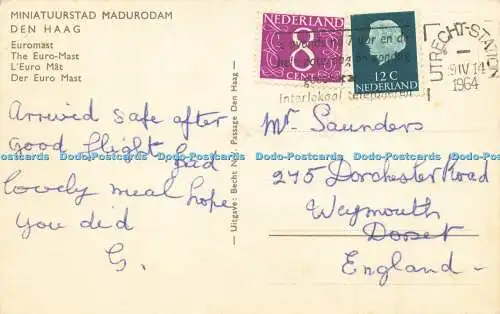 MINIATUURSTAD MADURODAM
DEN HAAG
Euromast
The Euro-Mast
L'Euro Mât
Der Euro Mast
Arrived safe after
Good flight had
lovely meal hope
you did
G.
Uitgave: Becht N.V., Passage Den Haag
NEDERLAND
8
CENT
12 C
NEDERLAND
's avonds na 7 uur en de
Interlokaal telefoneren
UTRECHT-STATION
IV 14
1964
Mr Saunders
275 Dorchester Road
Weymouth
Dorset
England
Dodo-Postcards Dodo-Postcards Dodo-Postcards Dodo-Postcards Dodo-Postcards Dodo-Postcards